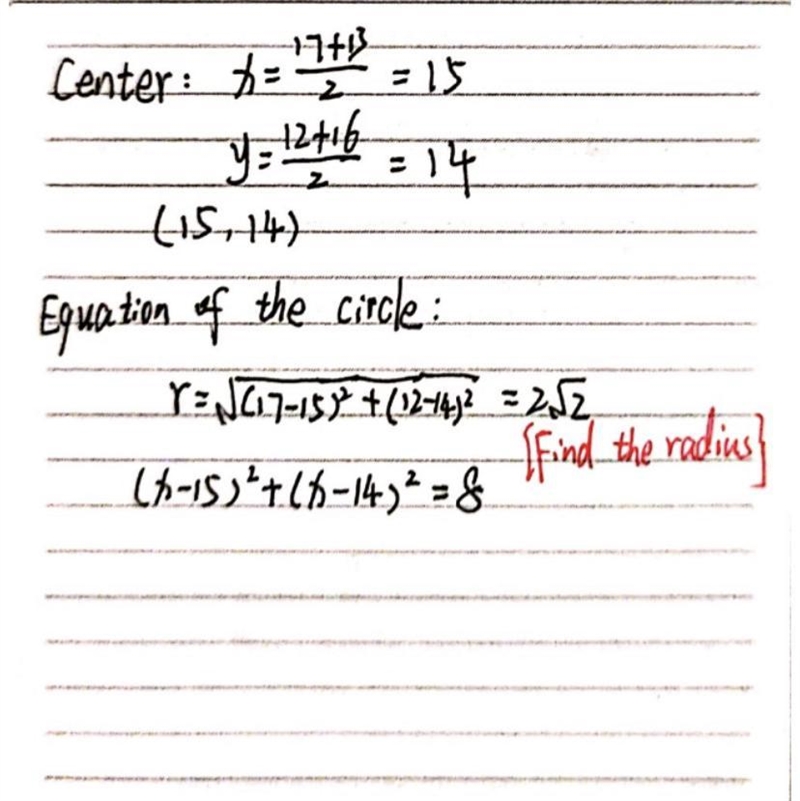 Center: x = (17+13)/2 = 15
y = (12+16)/2 = 14
(15, 14)
Equation of the circle:
r = √((17-15)² + (12-14)²) = 2√2
[Find the radius]
(x-15)² + (x-14)² = 8